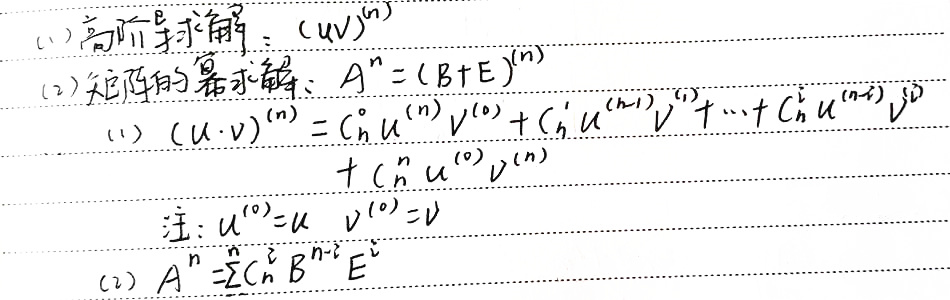 (1) 高阶导求解：(uv)^(n)
(2) 矩阵的幂求解：A^n = (B+E)^(n)
(1) (u·v)^(n) = C_n^0 u^(n) v^(0) + C_n^1 u^(n-1) v^(1) + … + C_n^i u^(n-i) v^(i)
+ C_n^n u^(0) v^(n)
注：u^(0)=u v^(0)=v
(2) A^n = Σ^n C_n^i B^(n-i) E^i